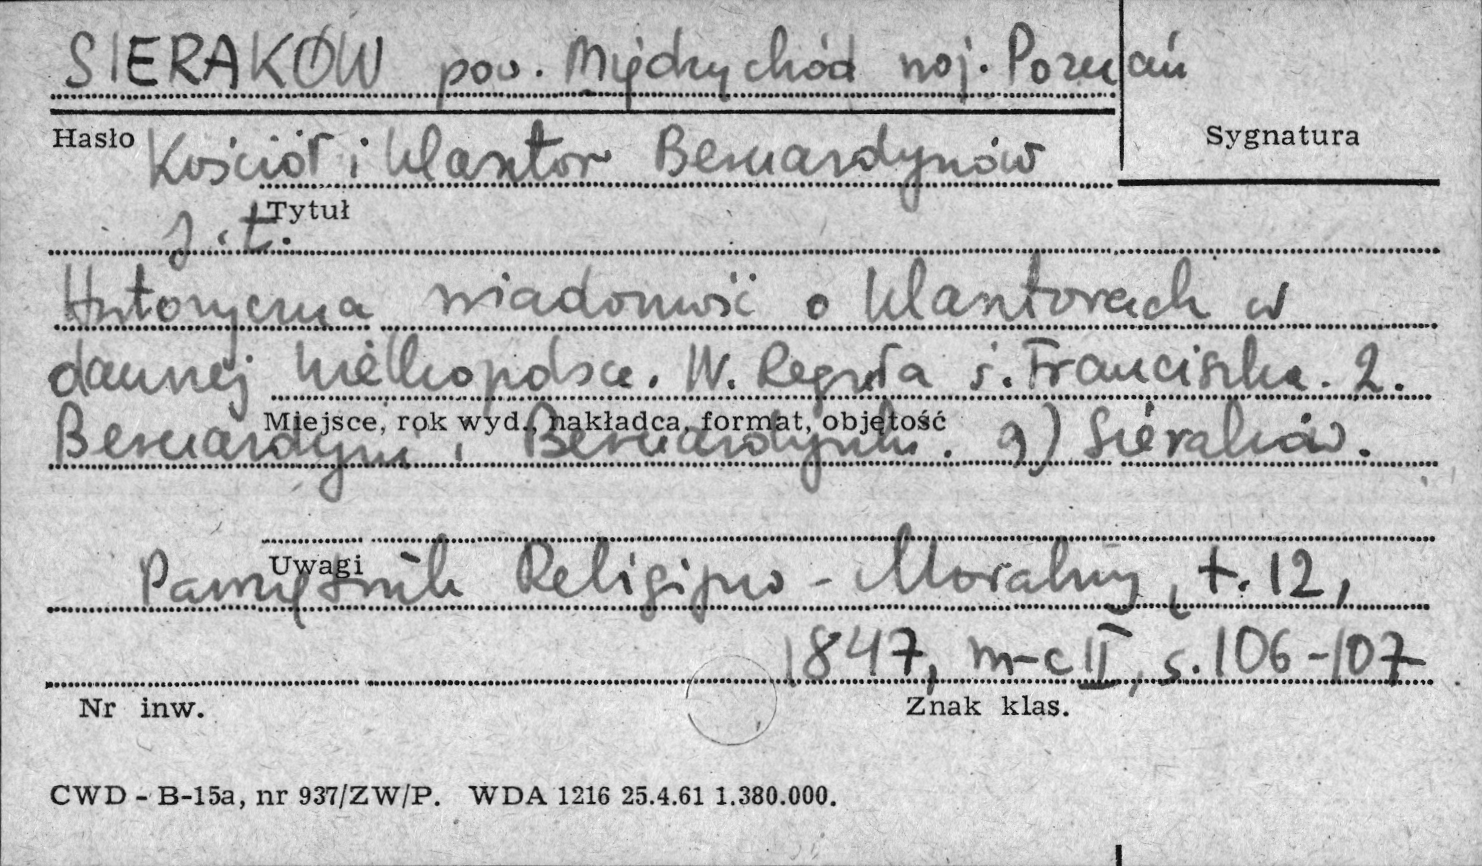 SIERAKÓW pow. Międzychód woj. Poznań
Hasło
Sygnatura
Kościół i klasztor Bernardynów
Tytuł
j.t.
Historyczna wiadomość o klasztorach w
dawnej Wielkopolsce. IV. Reguła ś. Franciszka. 2.
Miejsce, rok wyd., nakładca, format, objętość
Bernardyni i Bernardynki. g) Sieraków.
Uwagi
Pamiętnik Religijno-Moralny, t. 12,
1847, m-c II, s. 106-107
Nr inw.
Znak klas.
CWD - B-15a, nr 937/ZW/P. WDA 1216 25.4.61 1.380.000.